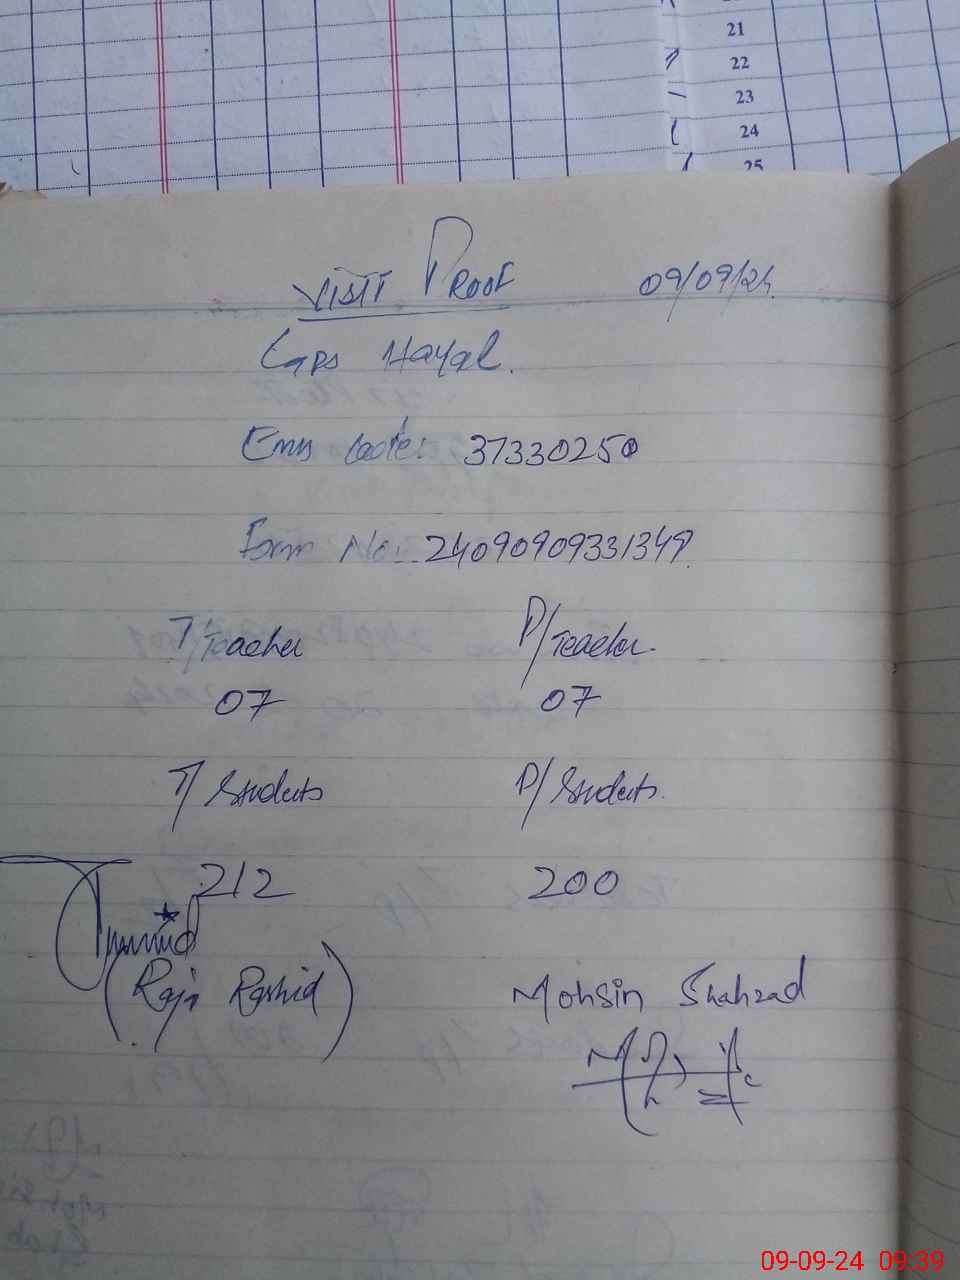 21
22
23
24
25
VISIT PROOF 09/09/24
GPS Hayal.
Emis Code: 37330250
Form No: 24090909331349
T/Teacher P/Teacher.
07 07
T/Students P/Students.
212 200
(Raja Rashid) Mohsin Shahzad
09-09-24 09:39